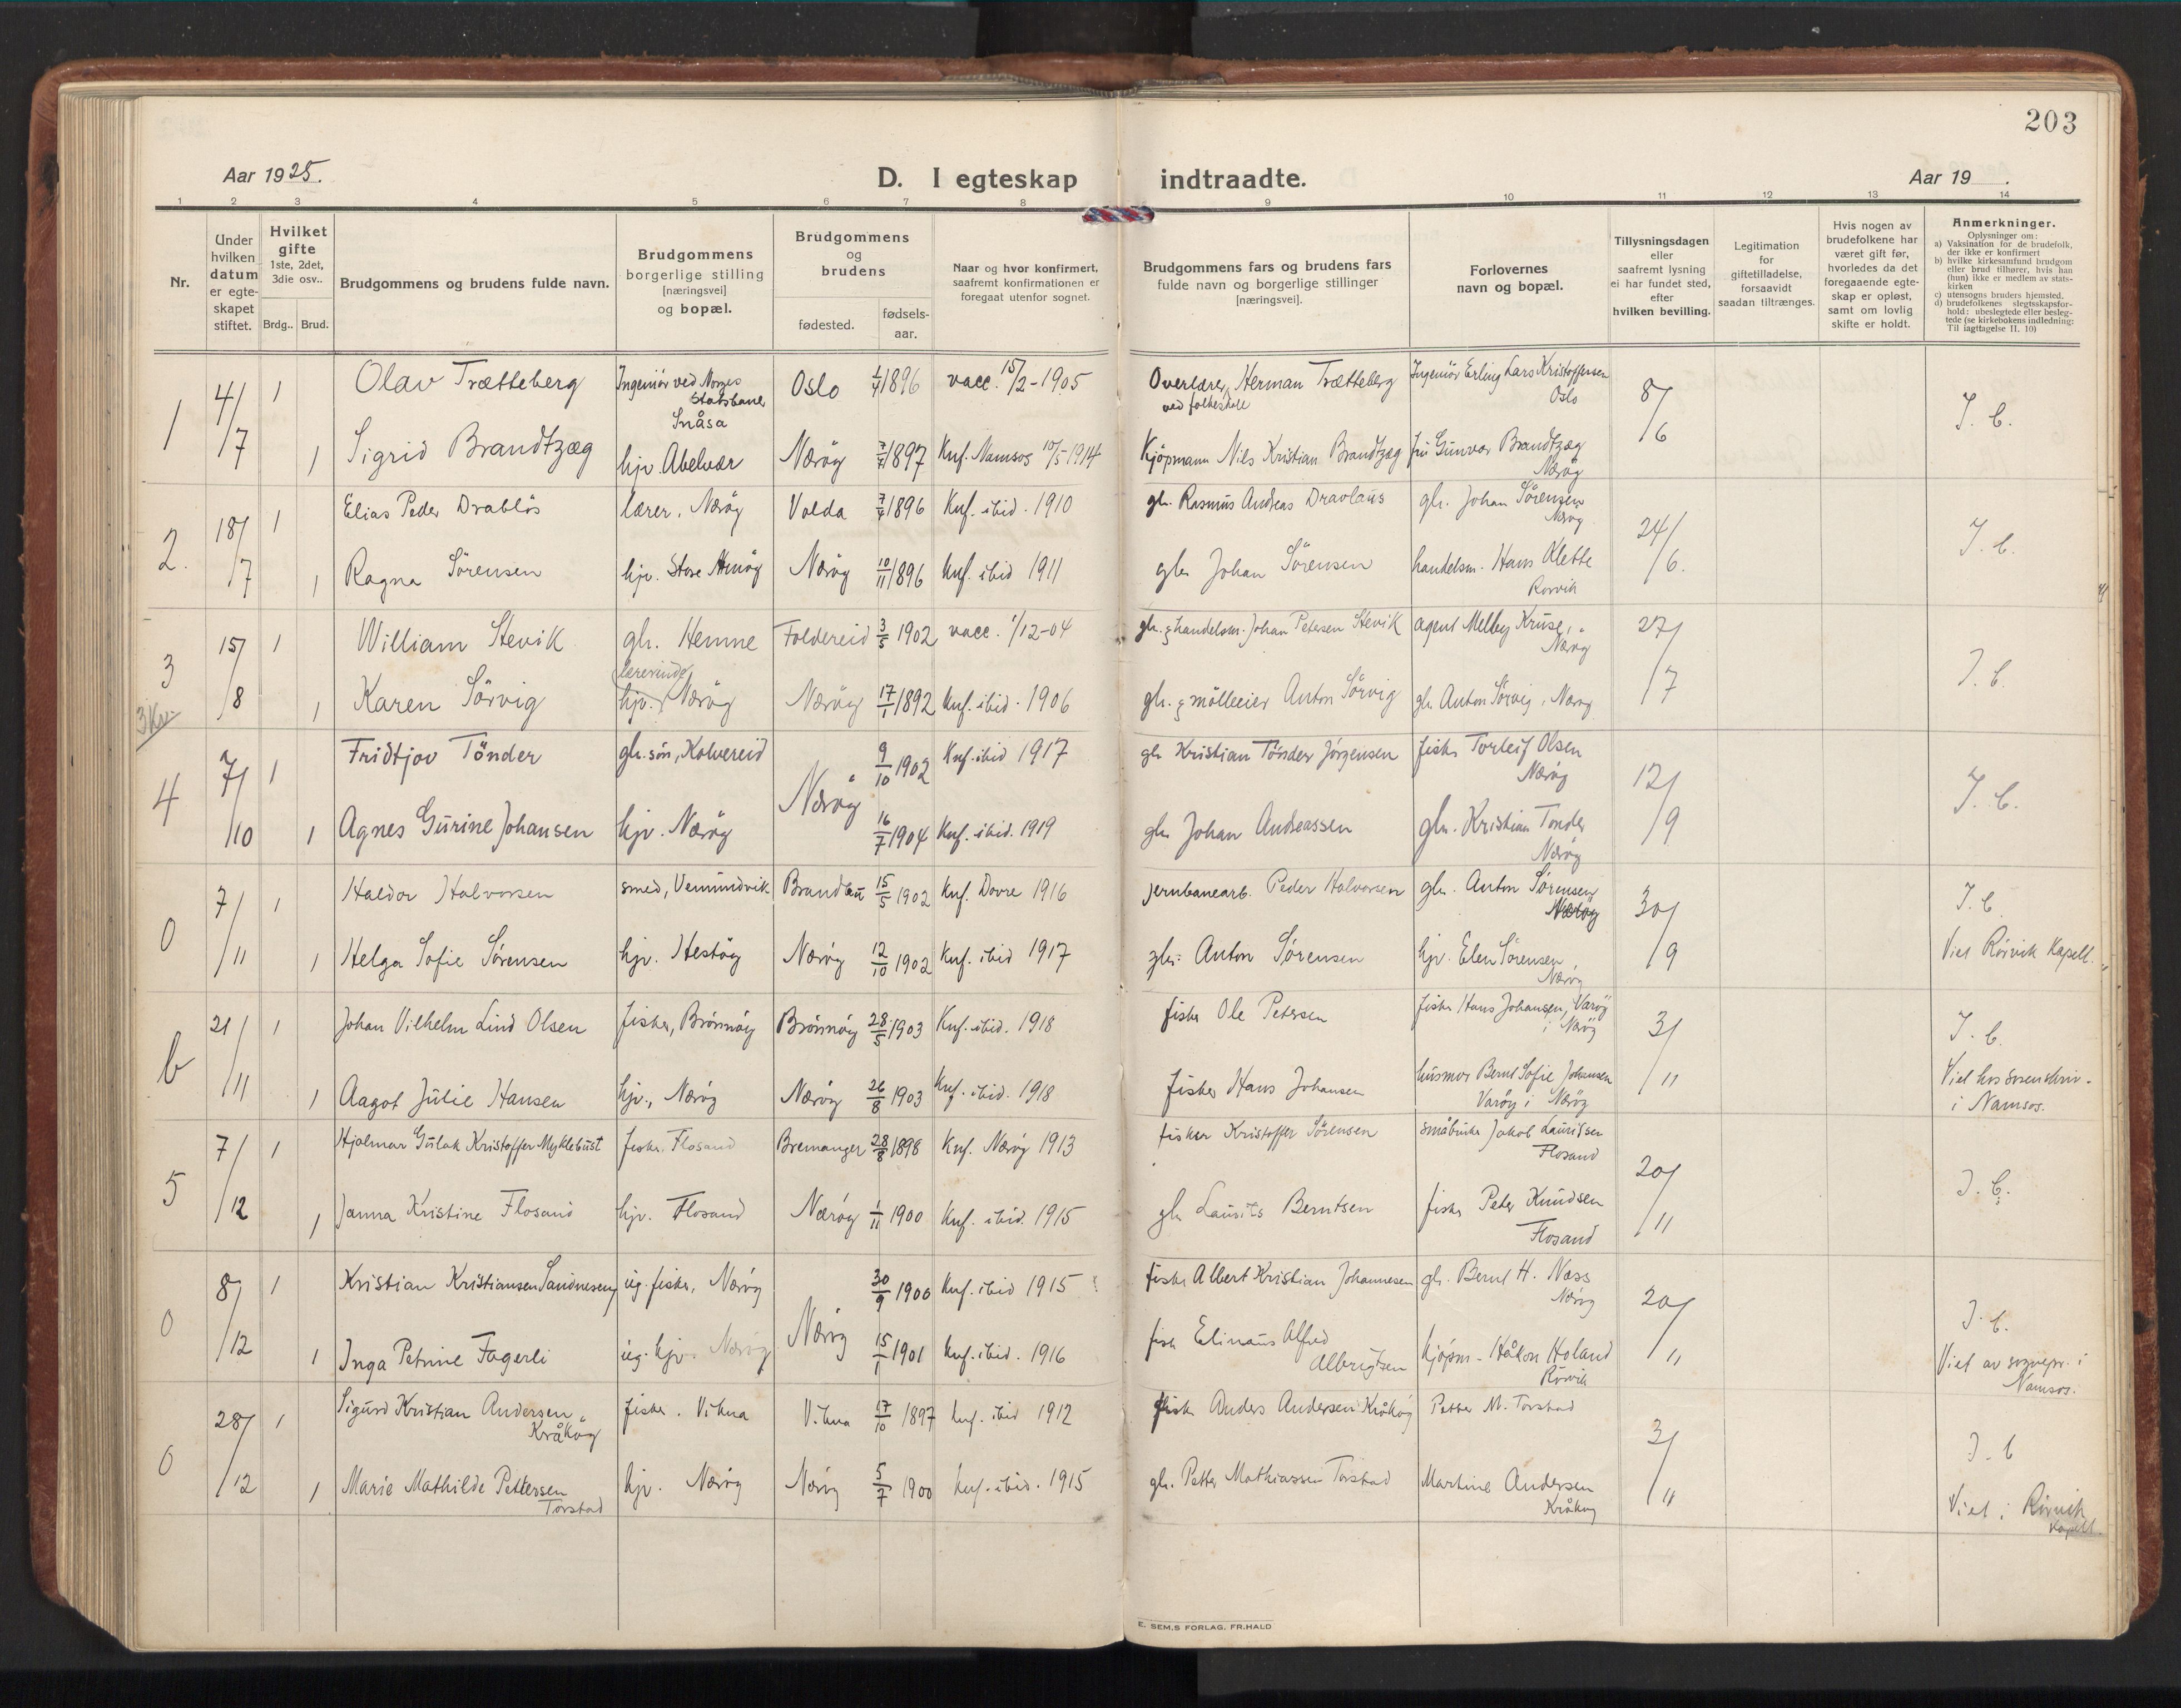 203
Aar 1925.
D. I egteskap indtraadte.
Aar 19 .
1 2 3 4 5 6 7 8 9 10 11 12 13 14
Nr.
Under hvilken datum er egte- skapet stiftet.
Hvilket gifte 1ste, 2det, 3die osv..
Brdg.. Brud.
Brudgommens og brudens fulde navn.
Brudgommens borgerlige stilling [næringsvei] og bopæl.
Brudgommens og brudens
fødested. fødsels- aar.
Naar og hvor konfirmert, saafremt konfirmationen er foregaat utenfor sognet.
Brudgommens fars og brudens fars fulde navn og borgerlige stillinger [næringsvei].
Forlovernes navn og bopæl.
Tillysningsdagen eller saafremt lysning ei har fundet sted, efter hvilken bevilling.
Legitimation for giftetilladelse, forsaavidt saadan tiltrænges.
Hvis nogen av brudefolkene har været gift før, hvorledes da det foregaaende egte- skap er opløst, samt om lovlig skifte er holdt.
Anmerkninger.
Oplysninger om:
a) Vaksination for de brudefolk, der ikke er konfirmert
b) hvilke kirkesamfund brudgom eller brud tilhører, hvis han (hun) ikke er medlem av stats- kirken
c) utensogns bruders hjemsted.
d) brudefolkenes slegtsskapsfor- hold: ubeslegtede eller besleg- tede (se kirkebokens indledning: Til iagttagelse II. 10)
1 4/7 1 Olav Trætteberg Ingeniør ved Norges Statsbaner Snåsa Oslo 1/4 1896 vacc. 15/2-1905 Overlærer ved folkeskole Herman Trætteberg Ingeniör Erling Lars Kristoffersen Oslo 8/6 I. b.
1 Sigrid Brandtzæg hjv. Abelvær Nærøy 7/7 1897 Knf. Namsos 10/5-1914 Kjöpmann Nils Kristian Brandtzæg fru Gunvor Brandtzæg Nærøy
2. 18/7 1 Elias Peder Drabløs lærer, Nærøy Volda 7/4 1896 Knf. ibid. 1910 gbr. Rasmus Andreas Dravlaus gbr. Johan Sörensen Nærøy 24/6. I. b.
1 Ragna Sörensen hjv. Nærøy 10/11 1896 Knf. ibid 1911 gbr Johan Sörensen handelsm. Hans Klette Rørvik
3 15/8 1 William Stevik gbr. Hemne Foldereid 3/5 1902 vacc. 1/12-04 gbr. & handelsm. Johan Petersen Stevik agent Melby Kruse, Nærøy 27/7 I. b.
3 Kr.
1 Karen Sörvig lærerinde hjv. Nærøy Nærøy 17/1 1892 Knf. ibid. 1906 gbr. & mölleeier Anton Sörvig gbr Anton Sörvig, Nærøy
4 7/10 1 Fridtjov Tönder gbr. sön, Kolvereid Nærøy 9/10 1902 Knf. ibid 1917 gbr Kristian Tönder Jörgensen fisker Torleif Olsen Nærøy 12/9 I. b.
1 Agnes Gurine Johansen hjv. Nærøy 16/7 1904 Knf. ibid. 1919 gbr Johan Andreassen gbr. Kristian Tönder Nærøy
0 7/11 1 Haldor Halvorsen smed, Vemundvik Brandbu 15/5 1902 Knf. Dovre 1916 jernbanearb. Peder Halvorsen gbr. Anton Sørensen Nærøy 30/9 I. b.
1 Helga Sofie Sørensen hjv. Hestøy Nærøy 12/10 1902 Knf. ibid 1917 gbr: Anton Sørensen hjv. Elen Sørensen Nærøy Viet Rörvik Kapell.
b 21/11 1 Johan Vilhelm Lind Olsen fisker, Brönnöy Brönnöy 28/5 1903 Knf. ibid. 1918 fisker Ole Petersen fisker Hans Johansen, Varöy i Nærøy 3/11 I. b.
1 Aagot Julie Hansen hjv., Nærøy Nærøy 26/8 1903 Knf. ibid. 1918 fisker Hans Johansen husmor Bernt Sofie Johansen Varöy i Nærøy Viet hos sorenskriv. i Namsos.
5 7/12 1 Hjalmar Gulak Kristoffer Myklebust fisker, Flosand Bremanger 28/8 1898 Knf. Nærøy 1913 fisker Kristoffer Sørensen småbruker Jakob Lauritsen Flosand 20/11 I. b.
1 Janna Kristine Flosand hjv. Flosand Nærøy 1/11 1900 Knf. ibid. 1915 gbr Laurits Berntsen fisker Peter Knudsen Flosand
0 8/12 1 Kristian Kristiansen Sandneseng ug. fisker, Nærøy Nærøy 30/9 1900 Knf. ibid 1915 fisker Albert Kristian Johannesen gbr. Bernt H. Næss Nærøy 20/11 I. b.
1 Inga Petrine Fagerli ug. hjv. Nærøy 15/1 1901 Knf. ibid. 1916 fisk Elinaus Alfred Albrigtsen kjöpm. Håkon Holand Rørvik Viet av sognepr. i Namsos.
0 28/12 1 Sigurd Kristian Andersen Kråköy fisker. Vikna Vikna 17/10 1897 Knf. ibid 1912 fisker Anders Andersen Kråköy Petter M. Torstad 3/11 I. b
1 Marie Mathilde Pettersen Torstad hjv. Nærøy Nærøy 5/7 1900 Knf. ibid. 1915 gbr. Petter Mathiassen Torstad Martine Andersen Kråköy Viet i Rörvik Kapell.
E. SEM.S FORLAG. FR.HALD